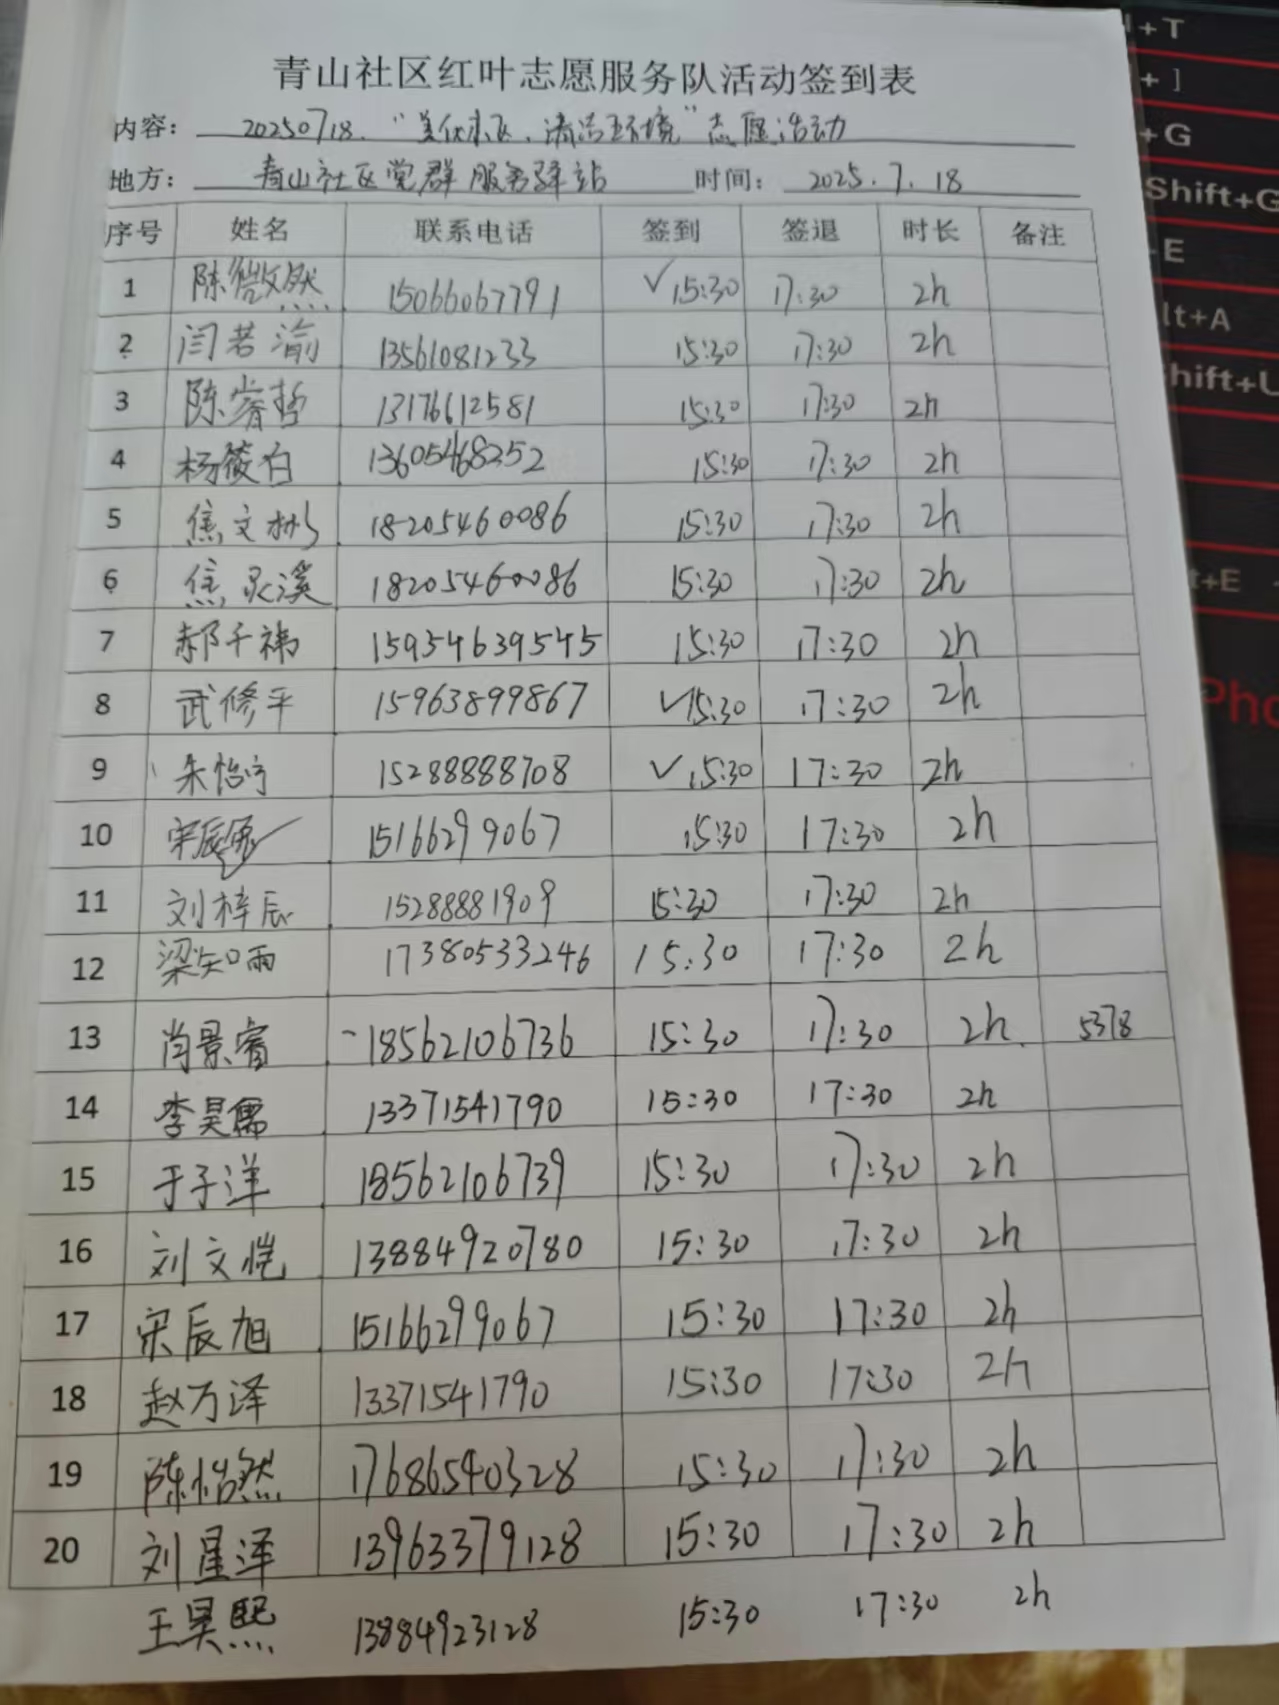 青山社区红叶志愿服务队活动签到表
内容： 20250718. “美化小区、清洁环境”志愿活动
地方： 青山社区党群服务驿站 时间： 2025.7.18
序号 姓名 联系电话 签到 签退 时长 备注
1 陈微然 15066067791 ✓15:30 17:30 2h
2 闫若渝 13561081233 15:30 17:30 2h
3 陈睿哲 13176612581 15:30 17:30 2h
4 杨筱白 13605468252 15:30 17:30 2h
5 焦文彬 18205460086 15:30 17:30 2h
6 焦灵溪 18205460086 15:30 17:30 2h
7 郝千祎 15954639545 15:30 17:30 2h
8 武修平 15963899867 ✓15:30 17:30 2h
9 朱怡宁 15288888708 ✓15:30 17:30 2h
10 宋辰 15166299067 15:30 17:30 2h
11 刘梓辰 15288881909 15:30 17:30 2h
12 梁知雨 17380533246 15:30 17:30 2h
13 肖景睿 18562106736 15:30 17:30 2h 5378
14 李昊儒 13371541790 15:30 17:30 2h
15 于子洋 18562106739 15:30 17:30 2h
16 刘文恺 13884920780 15:30 17:30 2h
17 宋辰旭 15166299067 15:30 17:30 2h
18 赵万泽 13371541790 15:30 17:30 2h
19 陈怡然 17686540328 15:30 17:30 2h
20 刘星泽 13963379128 15:30 17:30 2h
王昊熙 13884923128 15:30 17:30 2h
+T
+]
+G
Shift+G
+E
lt+A
hift+U
t+E
Pho